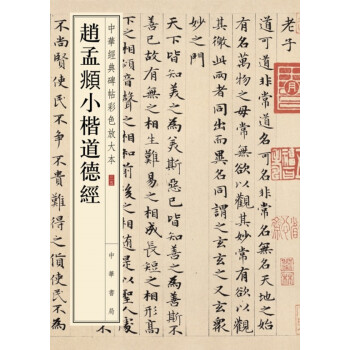 老子
道可道非常道名可名非常名無名天地之始
有名萬物之母常無欲以觀其妙常有欲以觀
其徼此兩者同出而異名同謂之玄玄之又玄衆
妙之門
天下皆知美之為美斯惡已皆知善之為善斯不
善已故有無之相生難易之相成長短之相形高
下之相傾音聲之相和前後之相隨是以聖人處
中華經典碑帖彩色放大本
中華書局
趙孟頫小楷道德經
不尚賢使民不爭不貴難得之貨使民不為